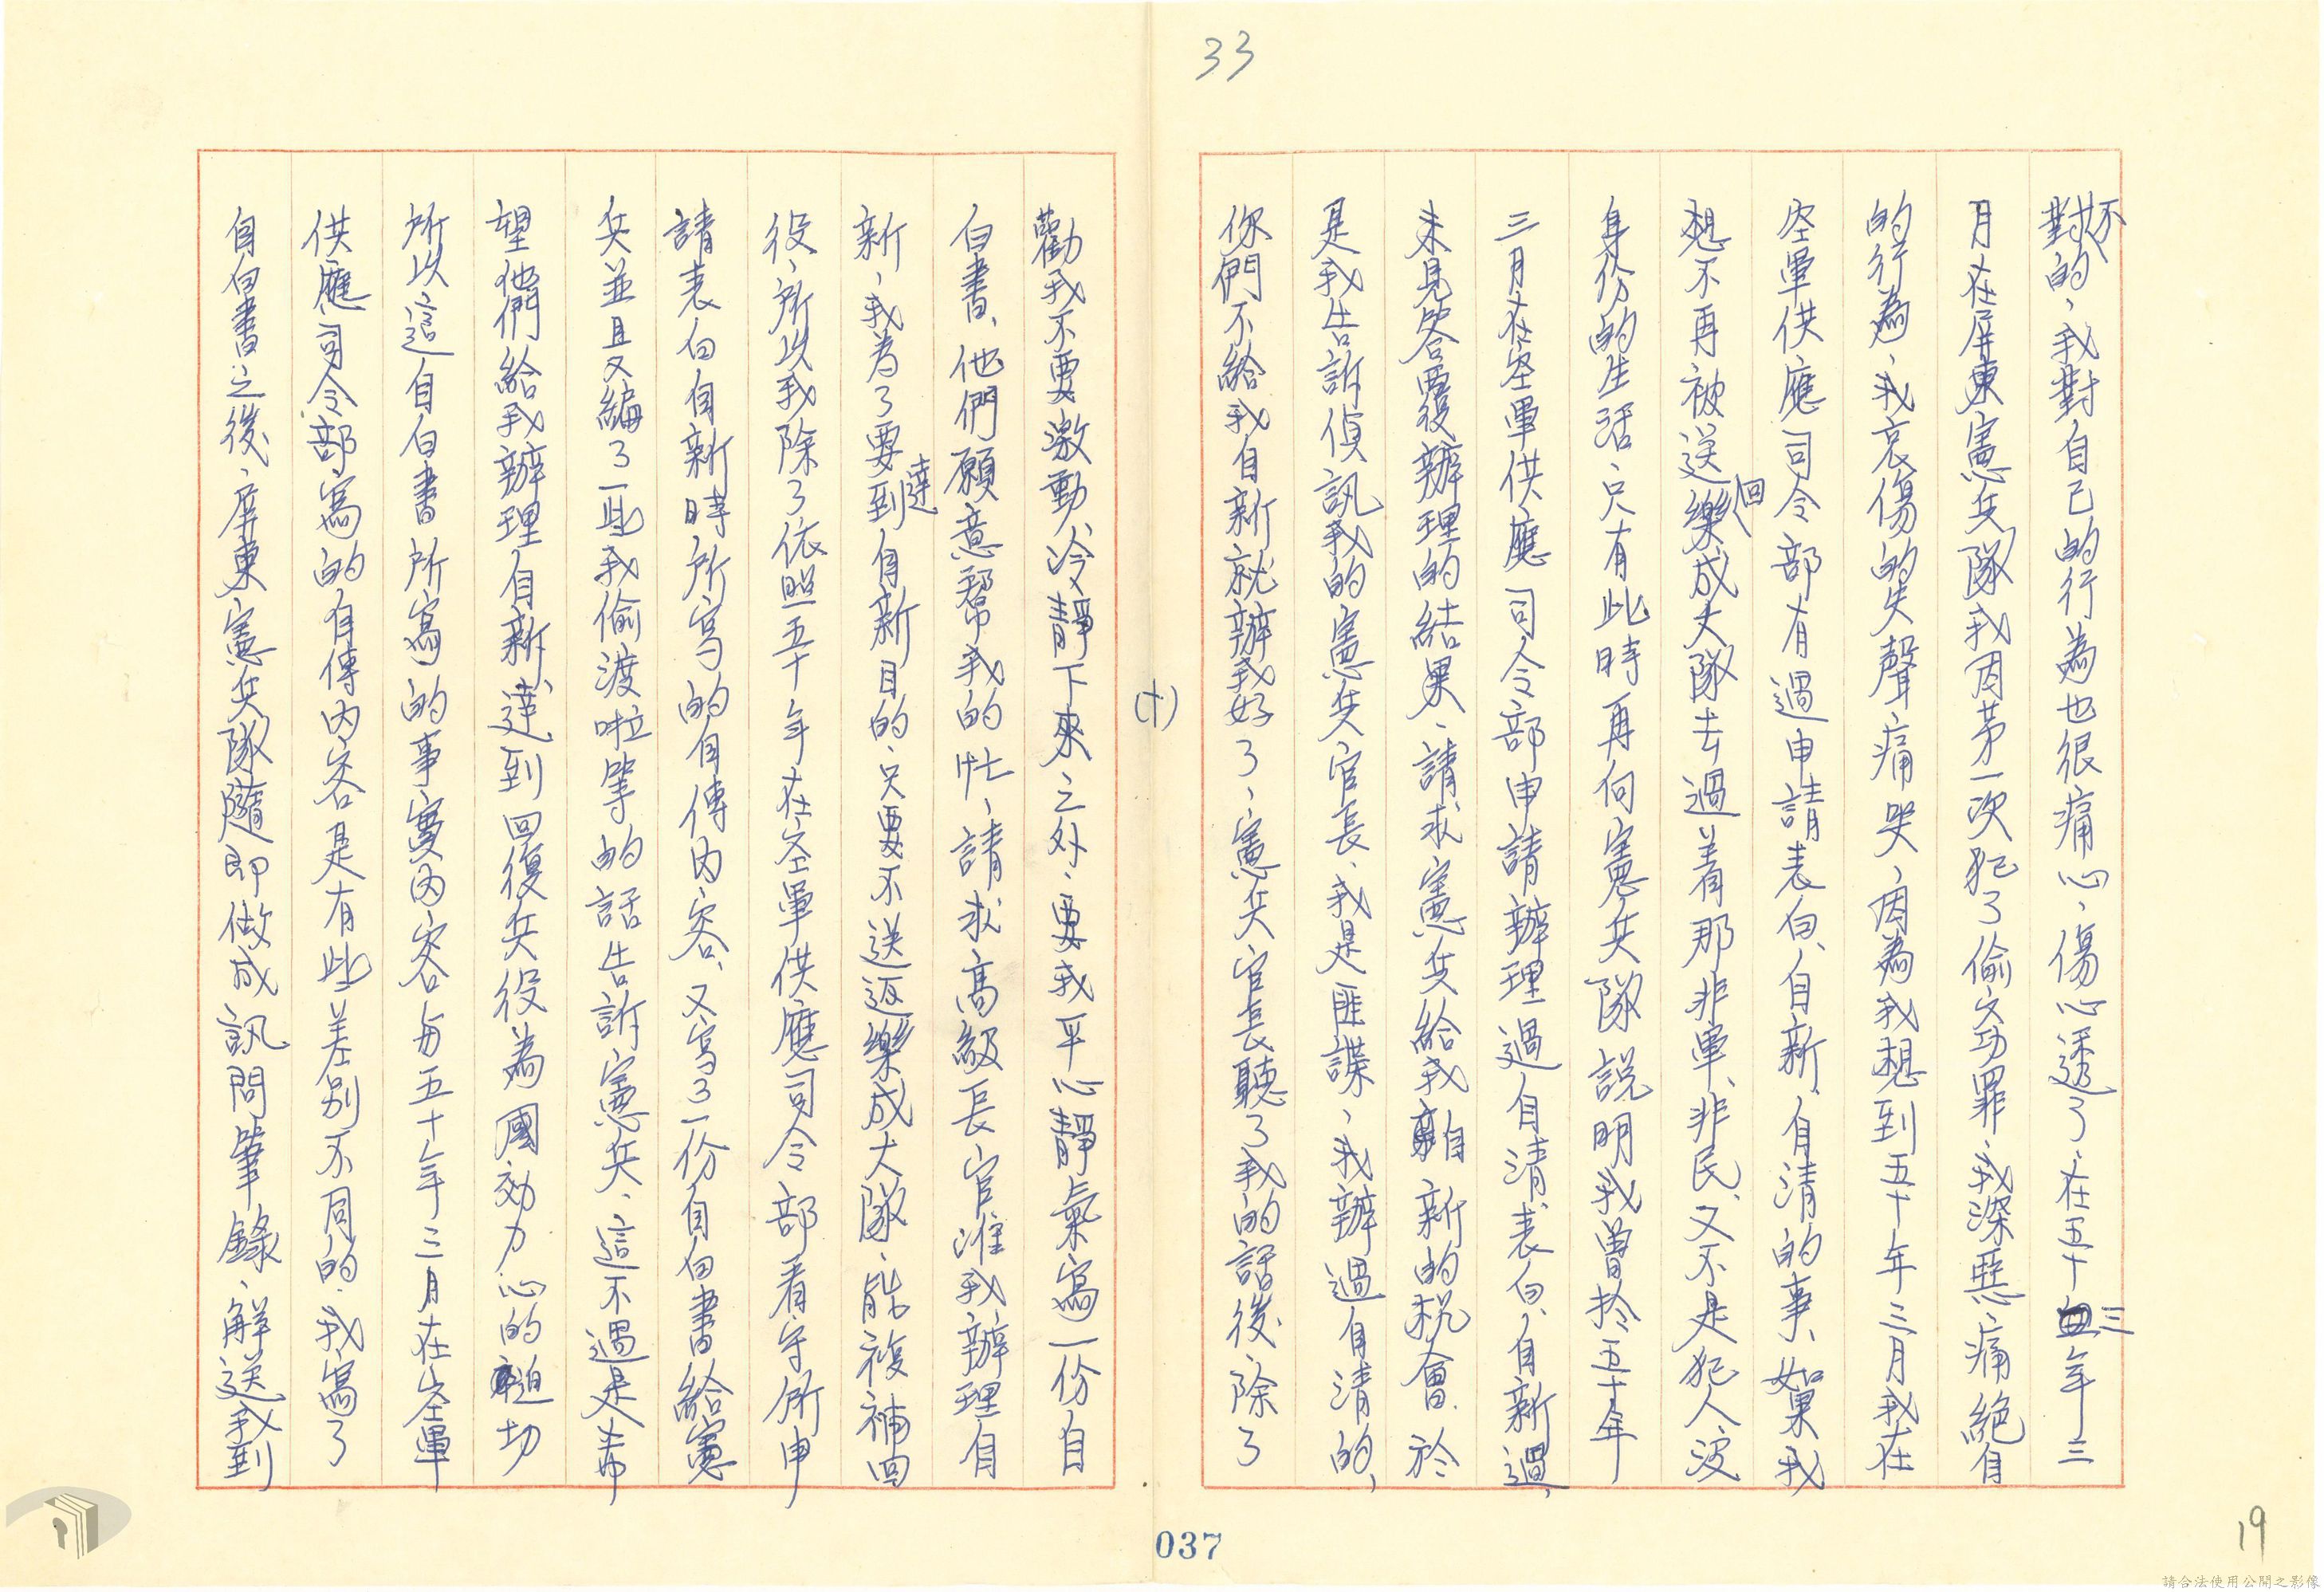 33
不對的，我對自己的行為也很痛心，傷心透了，在五十三年三
月在屏東憲兵隊我因第一次犯了偷文功罪，我深惡，痛絕自
的行為，我哀傷的失聲痛哭，因為我想到五十年三月我在
空軍供應司令部有過申請表白、自新、自清的事、如果我
想不再被送回樂成大隊去過着那非軍、非民、又不是犯人沒
身份的生活，只有此時再向憲兵隊說明我曾於五十年
三月在空軍供應司令部申請辦理過自清、表白、自新過，
未見答覆辦理的結果、請求憲兵給我自新的机會，於
是我告訴偵訊我的憲兵官長、我是匪諜，我辦過自清的，
你們不給我自新就辦我好了，憲兵官長聽了我的話後，除了
(十)
勸我不要激動，冷靜下來之外，要我平心靜氣寫一份自
白書、他們願意幫我的忙，請求高級長官准我辦理自
新，我為了要達到自新目的，只要不送返樂成大隊、能複補回
役，所以我除了依照五十年在空軍供應司令部看守所申
請表白自新時所寫的自傳內容，又寫了一份自白書給憲
兵並且又編了一些我偷渡啦等的話告訴憲兵、這不過是希
望他們給我辦理自新，達到回復兵役為國効力心的迫切
所以這自白書所寫的事實內容與五十年三月在空軍
供應司令部寫的自傳內容是有些差別不同的，我寫了
自白書之後，屏東憲兵隊隨即做成訊問筆錄，解送我到
037
19
請合法使用公開之影像